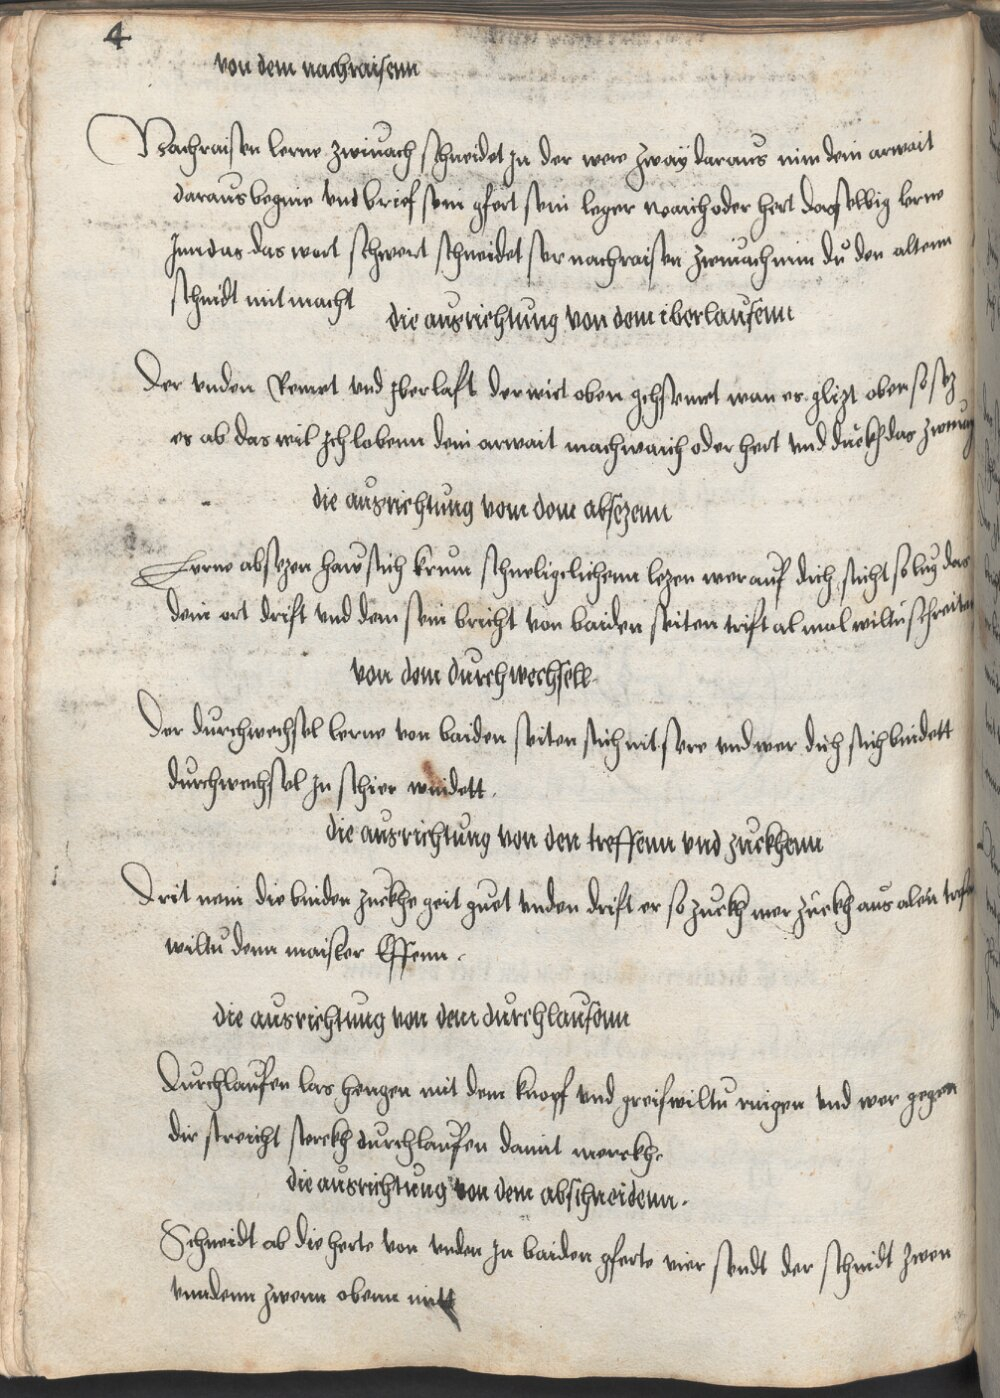 4
von dem nachraisenn
Nachraisen lerne zwivach schneidet jn der were zway daraus nim dein arwait
daraus begine vnd brief sein gfert sein leger waich oder hert dasselbig lerne
Jnndas das wort schwert schneidet ser nachraisen zwivach nim du den altenn
schnidt mit macht
die ausrichtung von dem iberlaufenn
Der vnden Remet vnd yberlaft der wirt oben gchsemet wan es glizt oben so sez
es ab das wil jch lobenn dein arwait mach waich oder hert vnd duckh das zwivach
die ausrichtung vom dem absezenn
Lerne absezen haw stich krum schneligclichenn lezen wer auf dich sticht so lug das
dein ort drift vnd dem sein bricht von baiden seiten trift al mal wiltu schreiten
von dem durchwechsell
Der durchwechsel lerne von baiden seiten stich mit sere vnd wer dich sich bindett
durchwechsel jn schier windett.
die ausrichtung von den treffenn vnd zuckhenn
Drit nein die binden zuckhe geit guet vnden drift er so zuckh mer zuckh aus alen
wiltu denn maister Effenn.
die ausrichtung von dem durchlaufenn
Durchlaufen las hengen mit dem knopf vnd greif wiltu ringen vnd wer gegen
dir streicht sterckh durchlaufen damit merckh.
die ausrichtung von dem abschneidenn.
Schneidt ab die herte von vnden jn baiden gferte vier sendt der schnidt zwen
vnndenn zwenn obenn mitt